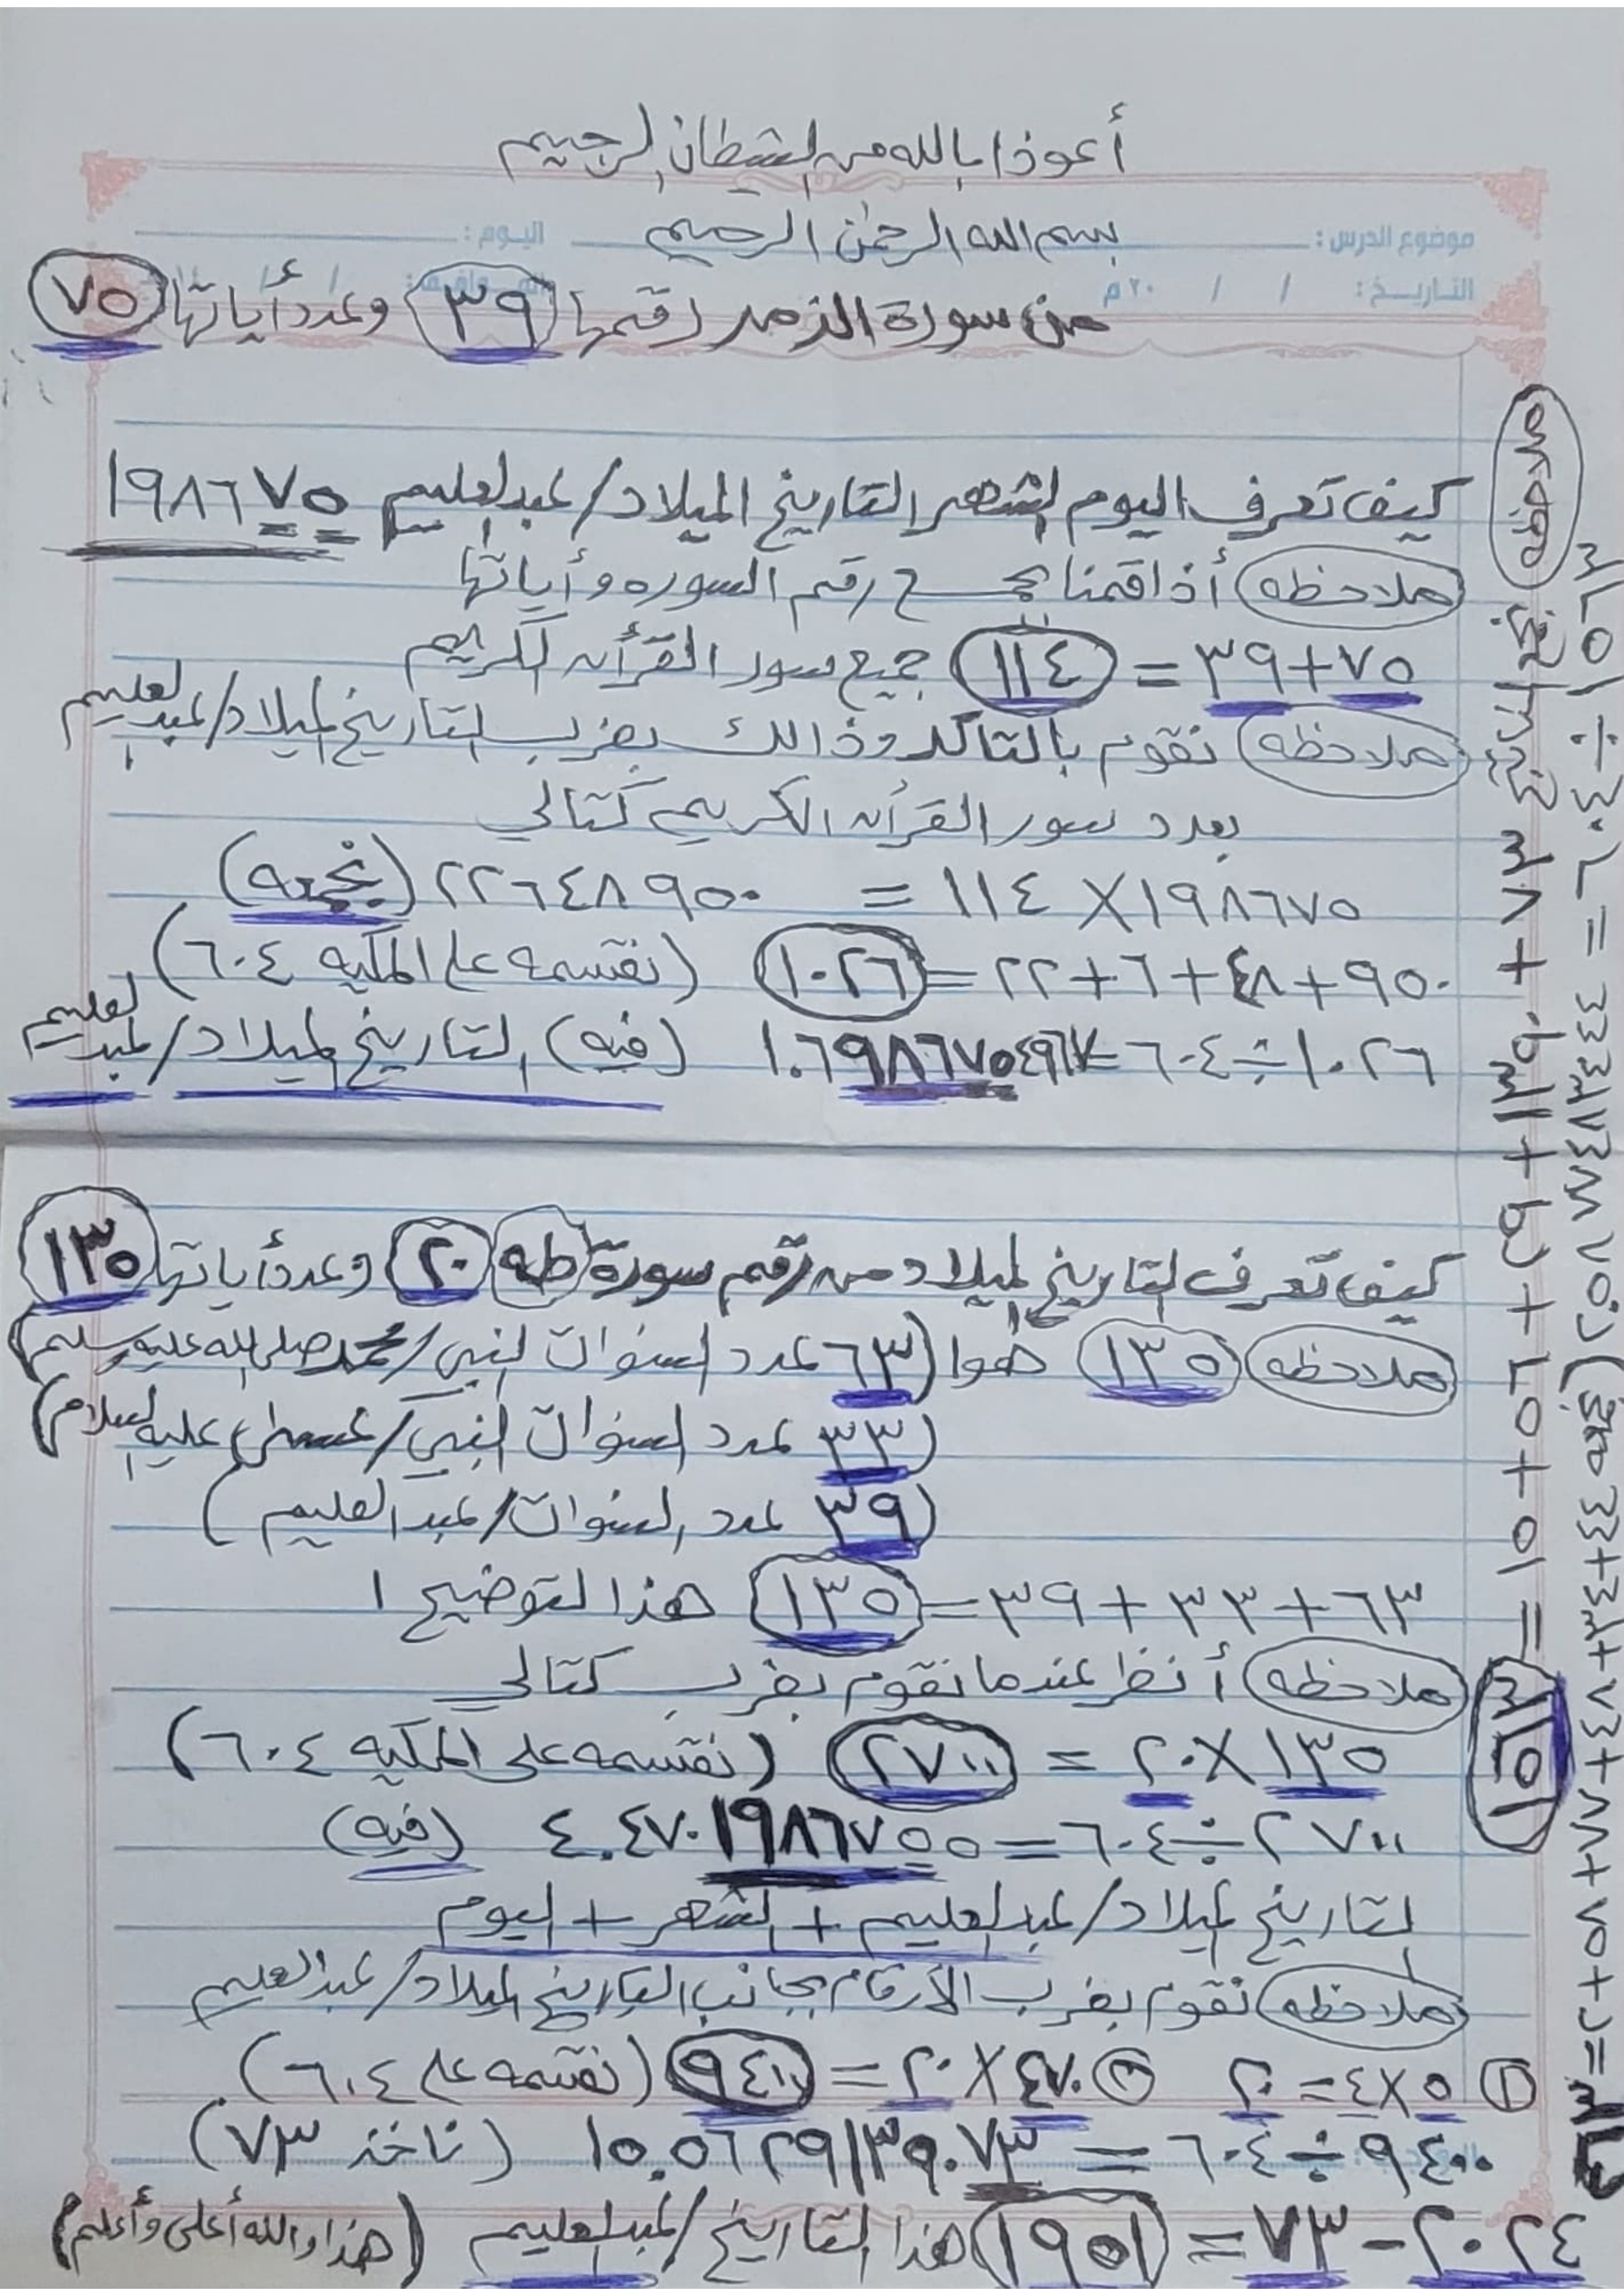 أعوذا بالله من الشيطان الرجيم
موضوع الدرس: بسم الله الرحمن الرحيم اليوم:
التاريخ: / / ٢٠م
من سورة الزمر رقمها ٣٩ وعدد أياتها ٧٥
كيف تعرف اليوم الشهر التاريخ الميلاد/عبدالعليم ١٩٨٦٧٥
ملاحظه أذا قمنا بجمع رقم السوره وأياتها
٧٥+٣٩= ١١٤ جميع سور القرأن الكريم
ملاحظه نقوم بالتاكد وذالك بضرب التاريخ الميلاد/عبدالعليم
بعدد سور القرأن الكريم كتالي
١٩٨٦٧٥×١١٤ = ٢٢٦٤٨٩٥٠ (نجمعه)
٩٥٠+٤٨+٦+٢٢=١٠٢٦ (نقسمه على المكيه ٦٠٤)
١٠٢٦÷٦٠٤=١.٦٩٨٦٧٥٤٩٦٧ (فيه) التاريخ الميلاد/عبدالعليم
كيف تعرف التاريخ الميلاد من رقم سورة طه ٢٠ وعدد أياتها ١٣٥
ملاحظه ١٣٥ هوا (٦٣ عدد السنوات النبي/محمد صلى الله عليه وسلم)
(٣٣ عدد السنوات النبي/عيسى عليه السلام)
(٣٩ عدد السنوات/عبدالعليم)
٦٣+٣٣+٣٩=١٣٥ هذا التوضيح ١
ملاحظه أنظر عندما نقوم بضرب كتالي
١٣٥×٢٠ = ٢٧٠٠ (نقسمه على المكيه ٦٠٤)
٢٧٠٠÷٦٠٤=٤.٤٧٠١٩٨٦٧٥٥ (فيه)
التاريخ الميلاد/عبدالعليم + الشهر + اليوم
ملاحظه نقوم بضرب الأرقام بجانب التاريخ الميلاد/عبدالعليم
١ ٥×٤=٢٠ ٢ ٤٧٠×٢٠=٩٤٠٠ (نقسمه على ٦٠٤)
٩٤٠٠÷٦٠٤=١٥.٥٦٢٩١٣٩٠٧٣ (ناخذ ٧٣)
٢٠٢٤-٧٣=١٩٥١ هذا التاريخ/عبدالعليم (هذا والله أعلى وأعلم)
ملاحظه